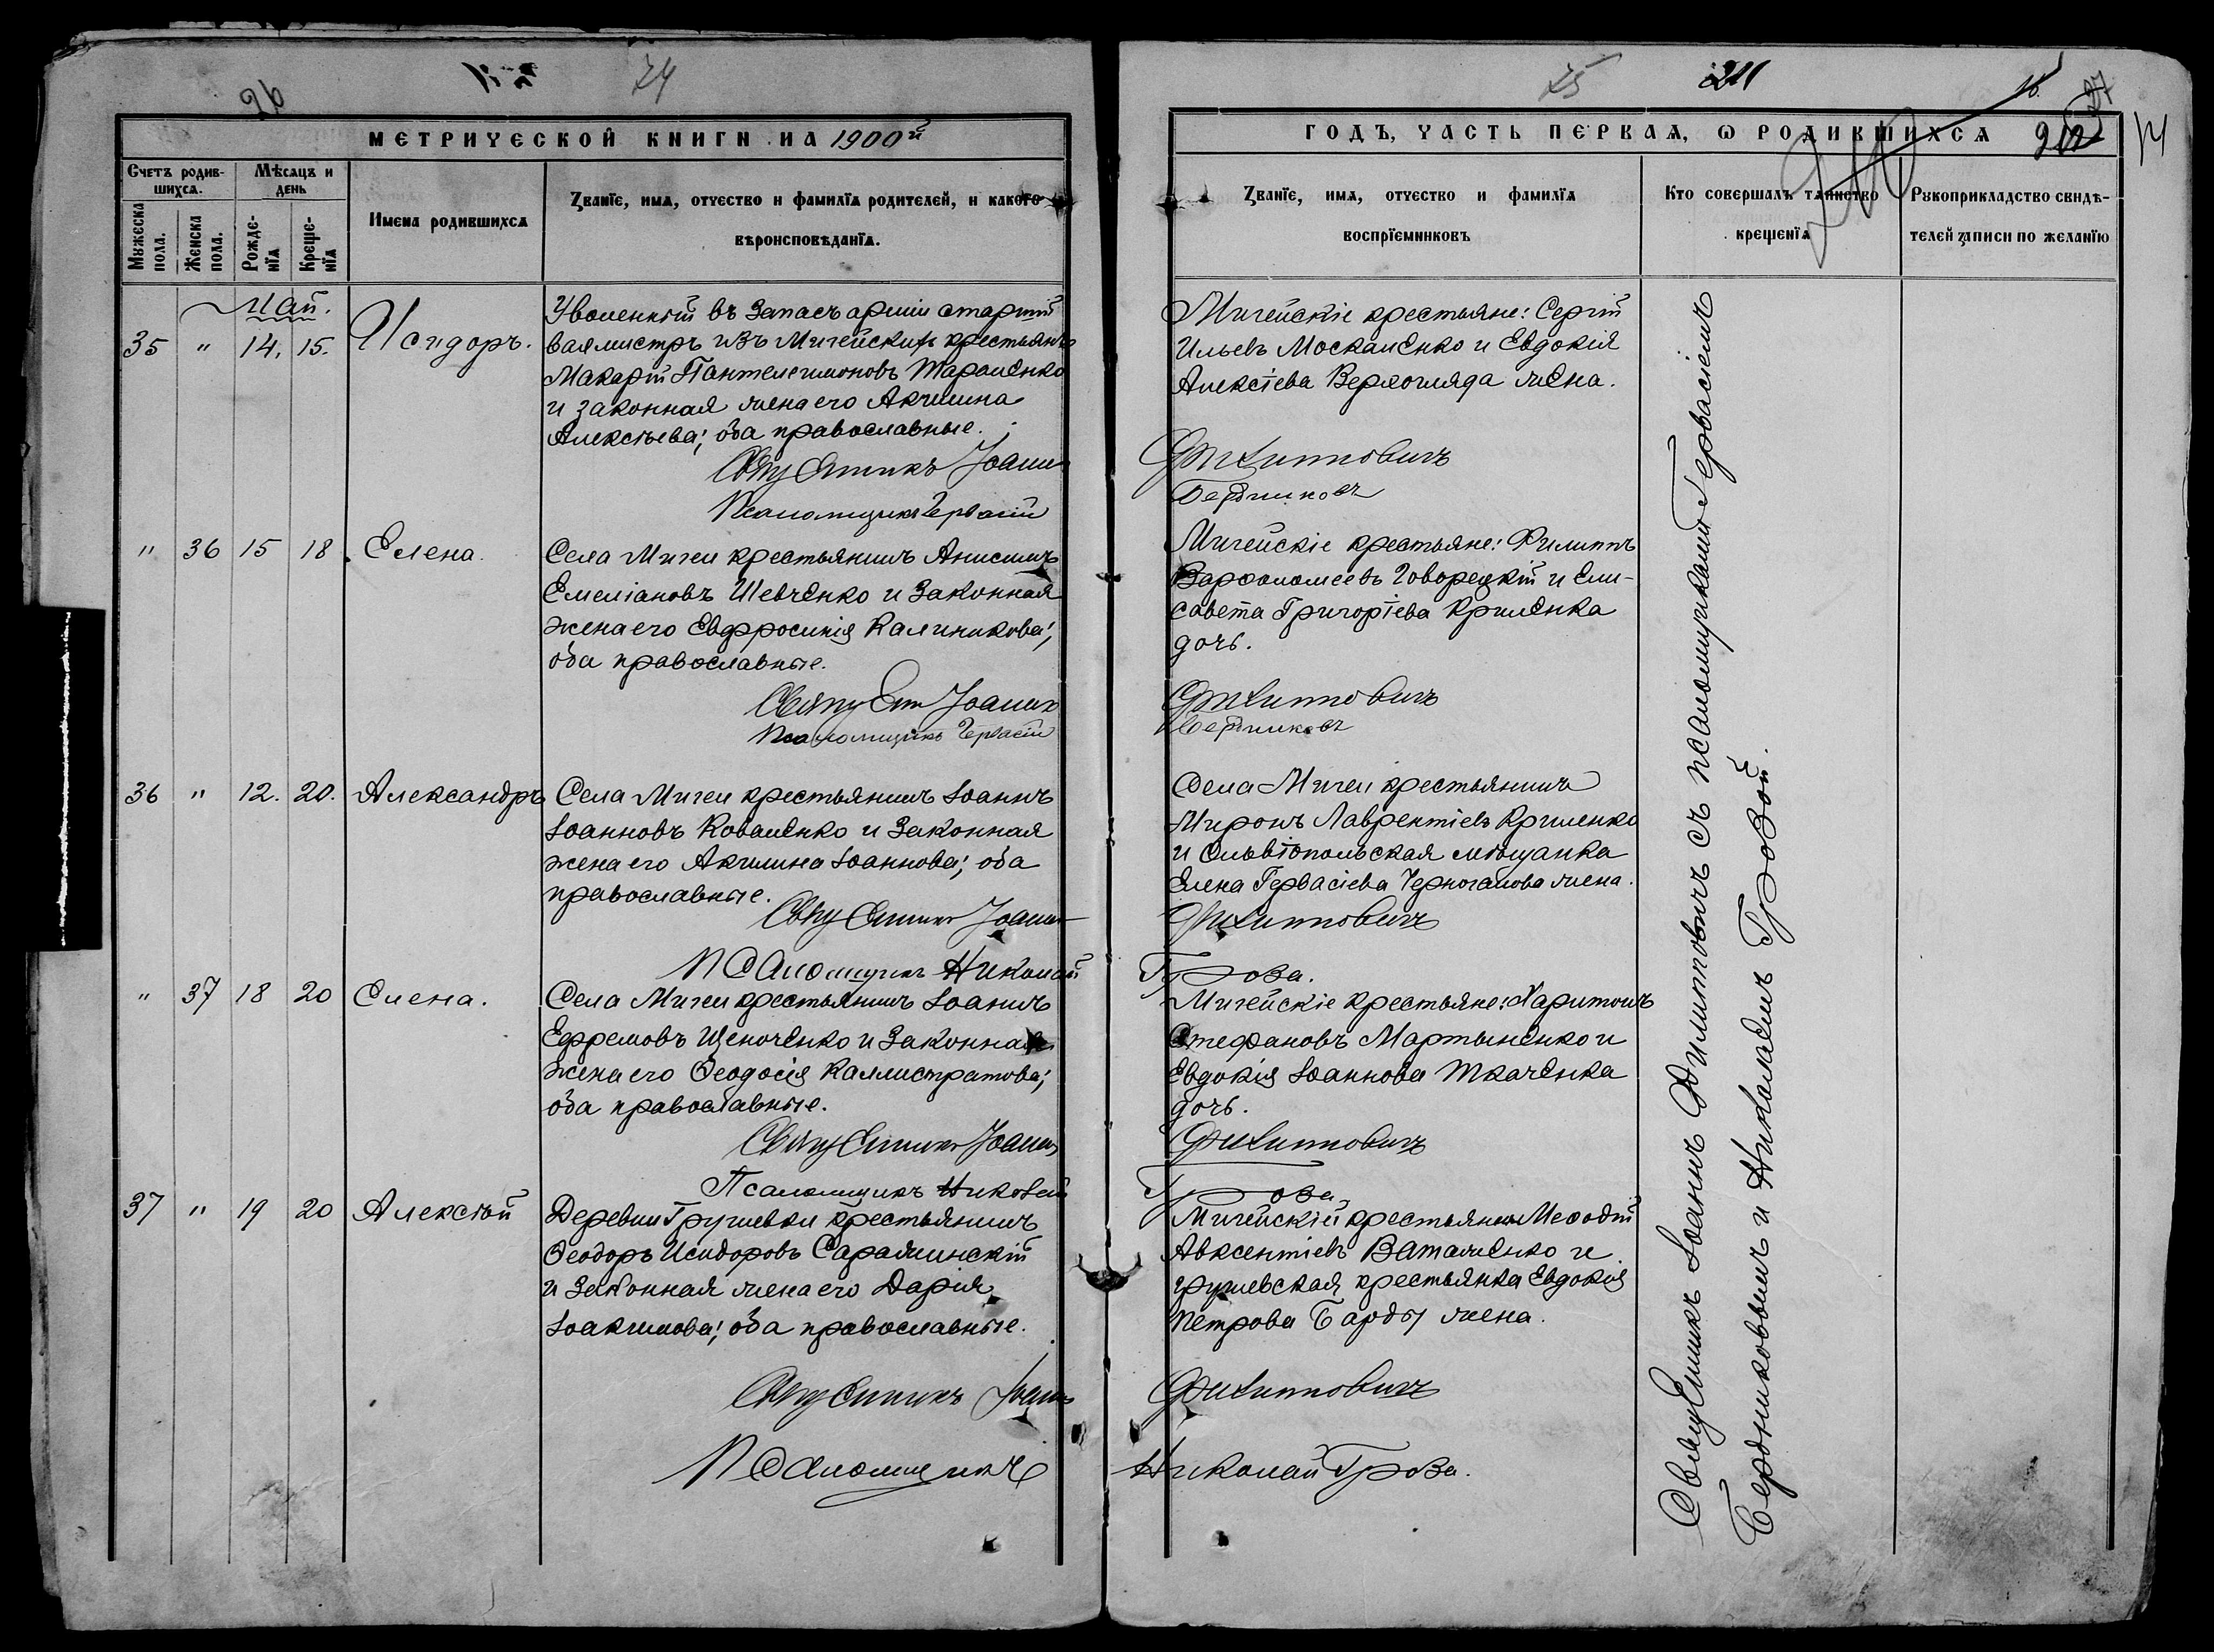 26
74
МЕТРИЧЕСКОЙ КНИГИ НА 1900й
Счетъ родив-
шихся.
Мѣсяцъ и
день
Имена родившихся
Званїе, имя, отчество и фамилїя родителей, и какого
вѣроисповѣданїя.
Мужеска
пола.
Женска
пола.
Рожде-
нїя
Креще-
нїя
Май.
35 " 14. 15. Исидоръ.
Уволенный въ запасъ арміи старшій
вахмистръ изъ Мигейскихъ крестьянъ
Макарій Пантелеимоновъ Тараненко
и законная жена его Акилина
Алексѣева; оба православные.
Священникъ Іоаннъ
Псаломщикъ Гервасій
" 36 15 18 Елена.
Села Мигеи крестьянинъ Анисимъ
Емеліановъ Шевченко и законная
жена его Евфросинія Калиникова;
оба православные.
Свящ Іоаннъ
Псаломщикъ Гервасій
36 " 12. 20. Александръ
Села Мигеи крестьянинъ Іоаннъ
Іоанновъ Коваленко и законная
жена его Акилина Іоаннова; оба
православные.
Священникъ Іоаннъ
Псаломщикъ Николай
" 37 18 20 Елена.
Села Мигеи крестьянинъ Іоаннъ
Ефремовъ Щеноченко и законная
жена его Ѳеодосія Каллистратова;
оба православные.
Священникъ Іоаннъ
Псаломщикъ Николай
37 " 19 20 Алексѣй
Деревни Грушевки крестьянинъ
Ѳеодоръ Исидоровъ Саражинскій
и законная жена его Дарія
Іоакимова; оба православные.
Священникъ Іоаннъ
Псаломщикъ
75
211
27
ГОДЪ, ЧАСТЬ ПЕРВАЯ, Ѡ РОДИВШИХСЯ
Званїе, имя, отчество и фамилїя
воспрїемниковъ
Кто совершалъ таинство
крещенїя
Рукоприкладство свидѣ-
телей записи по желанїю
Мигейскіе крестьяне: Сергій
Ильевъ Москаленко и Евдокія
Алексіева Верхогляда жена.
Филипповичъ
Бердниковъ
Мигейскіе крестьяне: Филиппъ
Варфоломеевъ Говорецкій и Ели-
савета Григоріева Криленка
дочь.
Филипповичъ
Бердниковъ
Села Мигеи крестьянинъ
Миронъ Лаврентіевъ Криленко
и Ольвіопольская мѣщанка
Елена Гервасіева Черноганова жена.
Филипповичъ
Грова.
Мигейскіе крестьяне: Харитонъ
Стефановъ Мартыненко и
Евдокія Іоаннова Ткаченка
дочь.
Филипповичъ
Грова
Мигейскій крестьянинъ Меѳодій
Авксентіевъ Ватаженко и
грушевская крестьянка Евдокія
Петрова Барды жена.
Филипповичъ
Николай Грова.
Священникъ Іоаннъ Филипповичъ съ псаломщиками Гервасіемъ
Бердниковымъ и Николаемъ Гровой.